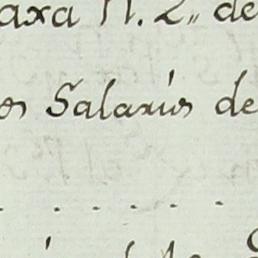 axa N. 2,, de
os Salarios de